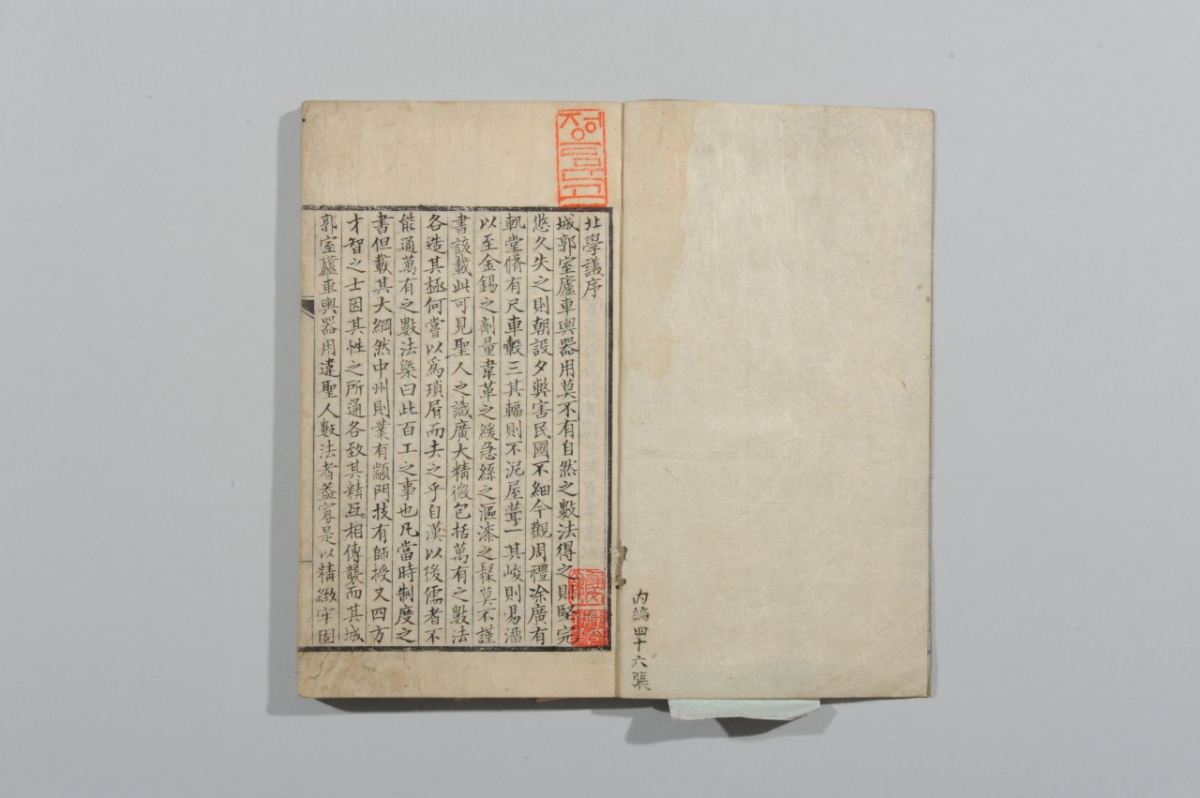 北學議序
城郭室廬車輿器用莫不有自然之數法得之則堅完
悠久失之則朝設夕弊害民國不細今觀周禮涂廣有
軌堂脩有尺車轂三其輻則不泥屋葺一其峻則易溜
以至金錫之劑量韋革之緩急絲之漚漆之髹莫不謹
書該載此可見聖人之識廣大精微包括萬有之數法
各造其極何嘗以爲瑣屑而夫之乎自漢以後儒者不
能通萬有之數法槩曰此百工之事也凡當時制度之
書但載其大綱然中州則業有顓門技有師授又四方
才智之士因其性之所通各致其精互相傳襲而其城
郭室廬車輿器用違聖人數法者蓋寡是以精緻牢固
內編四十六張